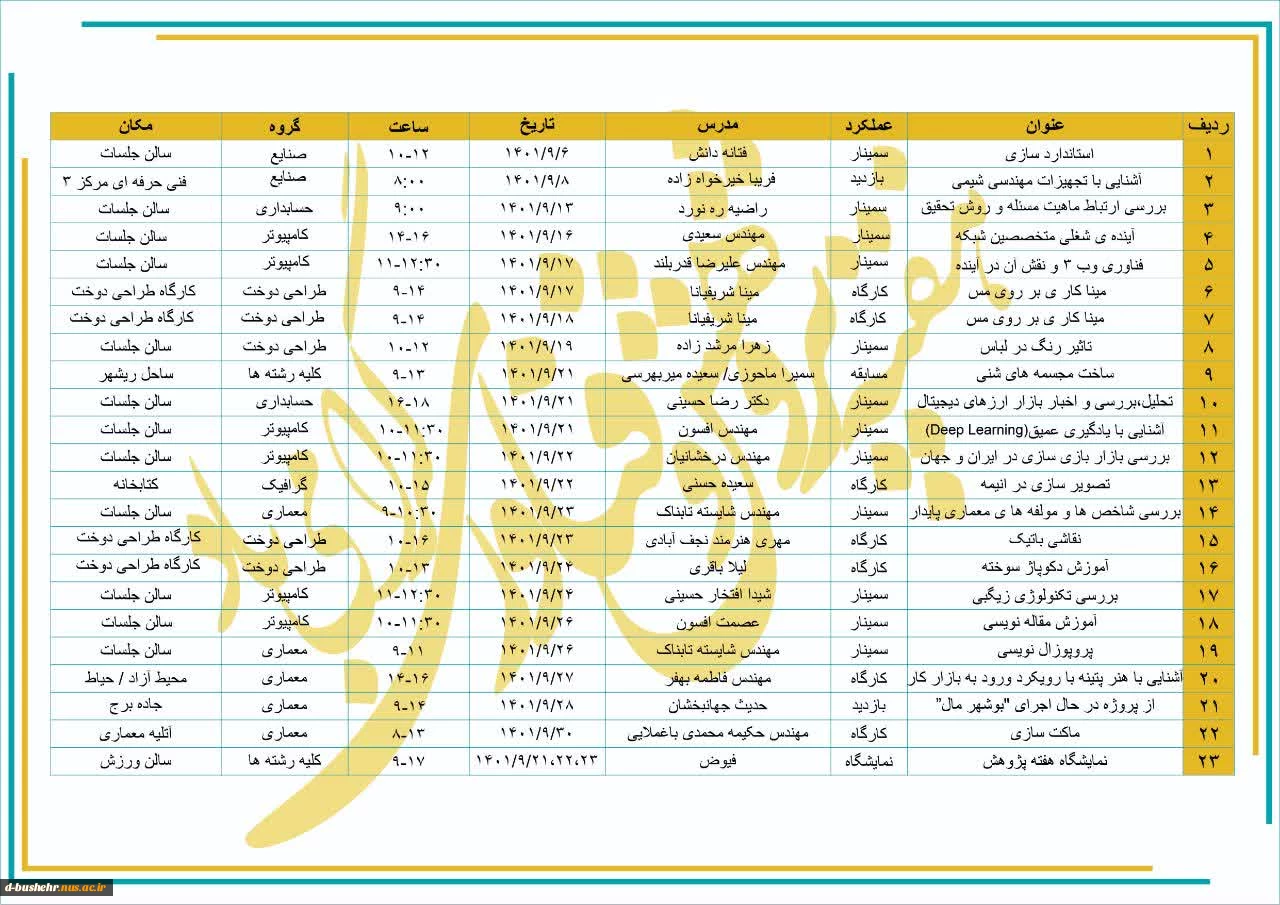 ردیف عنوان عملکرد مدرس تاریخ ساعت گروه مکان
۱ استاندارد سازی سمینار فتانه دانش ۱۴۰۱/۹/۶ ۱۰-۱۲ صنایع سالن جلسات
۲ آشنایی با تجهیزات مهندسی شیمی بازدید فریبا خیرخواه زاده ۱۴۰۱/۹/۸ ۸:۰۰ صنایع فنی حرفه ای مرکز ۳
۳ بررسی ارتباط ماهیت مسئله و روش تحقیق سمینار راضیه ره نورد ۱۴۰۱/۹/۱۳ ۹:۰۰ حسابداری سالن جلسات
۴ آینده ی شغلی متخصصین شبکه سمینار مهندس سعیدی ۱۴۰۱/۹/۱۶ ۱۴-۱۶ کامپیوتر سالن جلسات
۵ فناوری وب ۳ و نقش آن در آینده سمینار مهندس علیرضا قدربلند ۱۴۰۱/۹/۱۷ ۱۱-۱۲:۳۰ کامپیوتر سالن جلسات
۶ مینا کار ی بر روی مس کارگاه مینا شریفیانا ۱۴۰۱/۹/۱۷ ۹-۱۴ طراحی دوخت کارگاه طراحی دوخت
۷ مینا کار ی بر روی مس کارگاه مینا شریفیانا ۱۴۰۱/۹/۱۸ ۹-۱۴ طراحی دوخت کارگاه طراحی دوخت
۸ تاثیر رنگ در لباس سمینار زهرا مرشد زاده ۱۴۰۱/۹/۱۹ ۱۰-۱۲ طراحی دوخت سالن جلسات
۹ ساخت مجسمه های شنی مسابقه سمیرا ماحوزی/ سعیده میربهرسی ۱۴۰۱/۹/۲۱ ۹-۱۳ کلیه رشته ها ساحل ریشهر
۱۰ تحلیل،بررسی و اخبار بازار ارزهای دیجیتال سمینار دکتر رضا حسینی ۱۴۰۱/۹/۲۱ ۱۶-۱۸ حسابداری سالن جلسات
۱۱ آشنایی با یادگیری عمیق(Deep Learning) سمینار مهندس افسون ۱۴۰۱/۹/۲۱ ۱۰-۱۱:۳۰ کامپیوتر سالن جلسات
۱۲ بررسی بازار بازی سازی در ایران و جهان سمینار مهندس درخشانیان ۱۴۰۱/۹/۲۲ ۱۰-۱۱:۳۰ کامپیوتر سالن جلسات
۱۳ تصویر سازی در انیمه کارگاه سعیده حسنی ۱۴۰۱/۹/۲۲ ۱۰-۱۵ گرافیک کتابخانه
۱۴ بررسی شاخص ها و مولفه ها ی معماری پایدار سمینار مهندس شایسته تابناک ۱۴۰۱/۹/۲۳ ۹-۱۰:۳۰ معماری سالن جلسات
۱۵ نقاشی باتیک کارگاه مهری هنرمند نجف آبادی ۱۴۰۱/۹/۲۳ ۱۰-۱۶ طراحی دوخت کارگاه طراحی دوخت
۱۶ آموزش دکوپاژ سوخته کارگاه لیلا باقری ۱۴۰۱/۹/۲۴ ۱۰-۱۳ طراحی دوخت کارگاه طراحی دوخت
۱۷ بررسی تکنولوژی زیگبی سمینار شیدا افتخار حسینی ۱۴۰۱/۹/۲۴ ۱۱-۱۲:۳۰ کامپیوتر سالن جلسات
۱۸ آموزش مقاله نویسی سمینار عصمت افسون ۱۴۰۱/۹/۲۶ ۱۰-۱۱:۳۰ کامپیوتر سالن جلسات
۱۹ پروپوزال نویسی سمینار مهندس شایسته تابناک ۱۴۰۱/۹/۲۶ ۹-۱۱ معماری سالن جلسات
۲۰ آشنایی با هنر پتینه با رویکرد ورود به بازار کار کارگاه مهندس فاطمه بهفر ۱۴۰۱/۹/۲۷ ۱۴-۱۶ معماری محیط آزاد / حیاط
۲۱ از پروژه در حال اجرای "بوشهر مال" بازدید حدیث جهانبخشان ۱۴۰۱/۹/۲۸ ۹-۱۴ معماری جاده برج
۲۲ ماکت سازی کارگاه مهندس حکیمه محمدی باغملایی ۱۴۰۱/۹/۳۰ ۸-۱۳ معماری آتلیه معماری
۲۳ نمایشگاه هفته پژوهش نمایشگاه فیوض ۱۴۰۱/۹/۲۱،۲۲،۲۳ ۹-۱۷ کلیه رشته ها سالن ورزش
d-bushehr.nus.ac.ir